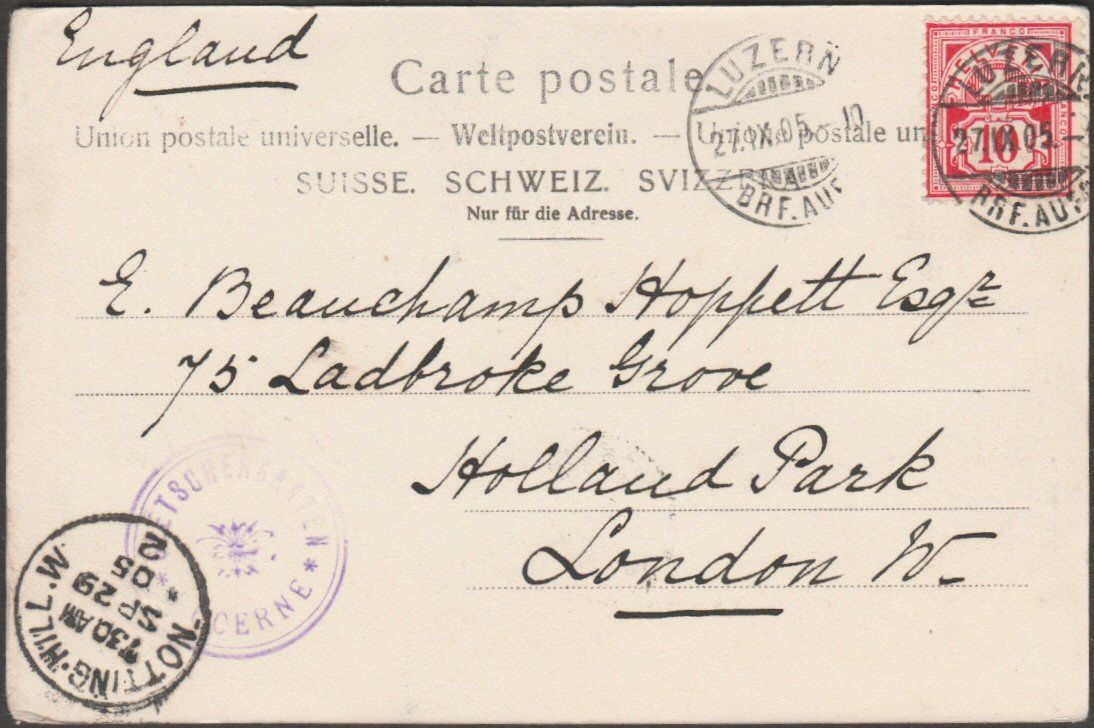 England
Carte postale
Union postale universelle. — Weltpostverein. — Unione postale un
SUISSE. SCHWEIZ. SVIZZERA
Nur für die Adresse.
LUZERN
27.IX.05.-10
BRF.AUF
FRANCO
HELVETIA
10
LUZERN
27.IX.05.-
BRF.AUF
E. Beauchamp Hoppett Esqr
75 Ladbroke Grove
Holland Park
London W
LUCERNE
NOTTING-HILL.W.
730 AM
SP 29
05